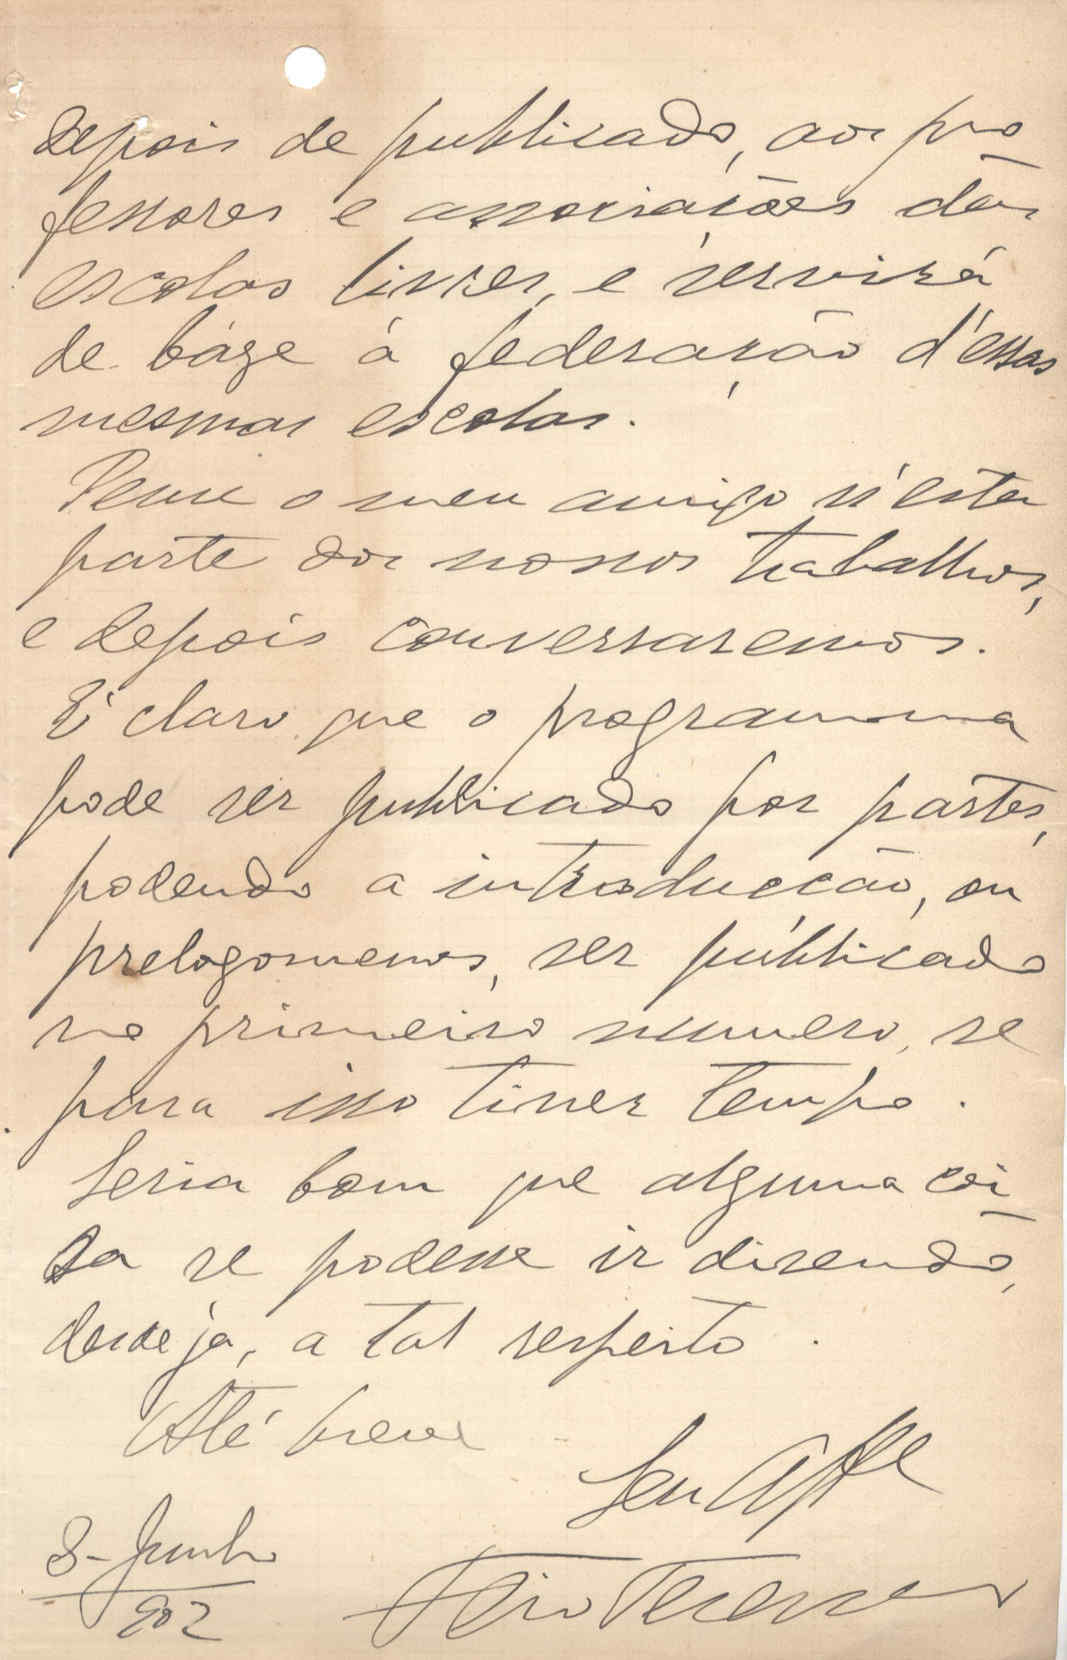 depois de publicado, aos pro
fessores e associações das
escolas livres, e servirá
de báze á federação d'essas
mesmas escolas.
Pense o meu amigo n'esta
parte dos nossos trabalhos,
e depois conversaremos.
É claro que o programma
pode ser publicado por partes,
podendo a introducção, ou
prelogomenos, ser publicado
no primeiro numero, se
para isso tiver tempo.
Seria bom que alguma coi
sa se podesse ir dizendo,
desde já, a tal respeito.
Até breve
Seu
8-Junho
902
Feio Terenas